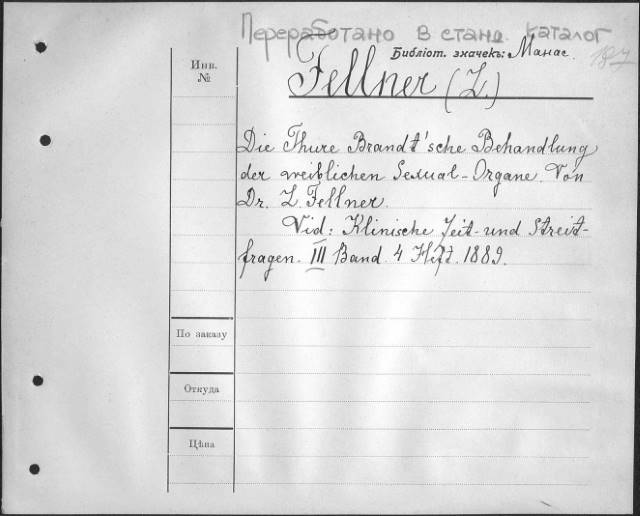 Переработано в станд. каталог
Библіот. значекъ: Манас.
187
Инв.
№
Fellner (L.)
Die Thure Brandt'sche Behandlung
der weiblichen Sexual-Organe. Von
Dr. L. Fellner.
Vid: Klinische Zeit- und Streit-
fragen. III Band. 4 Heft. 1889.
По заказу
Откуда
Цѣна